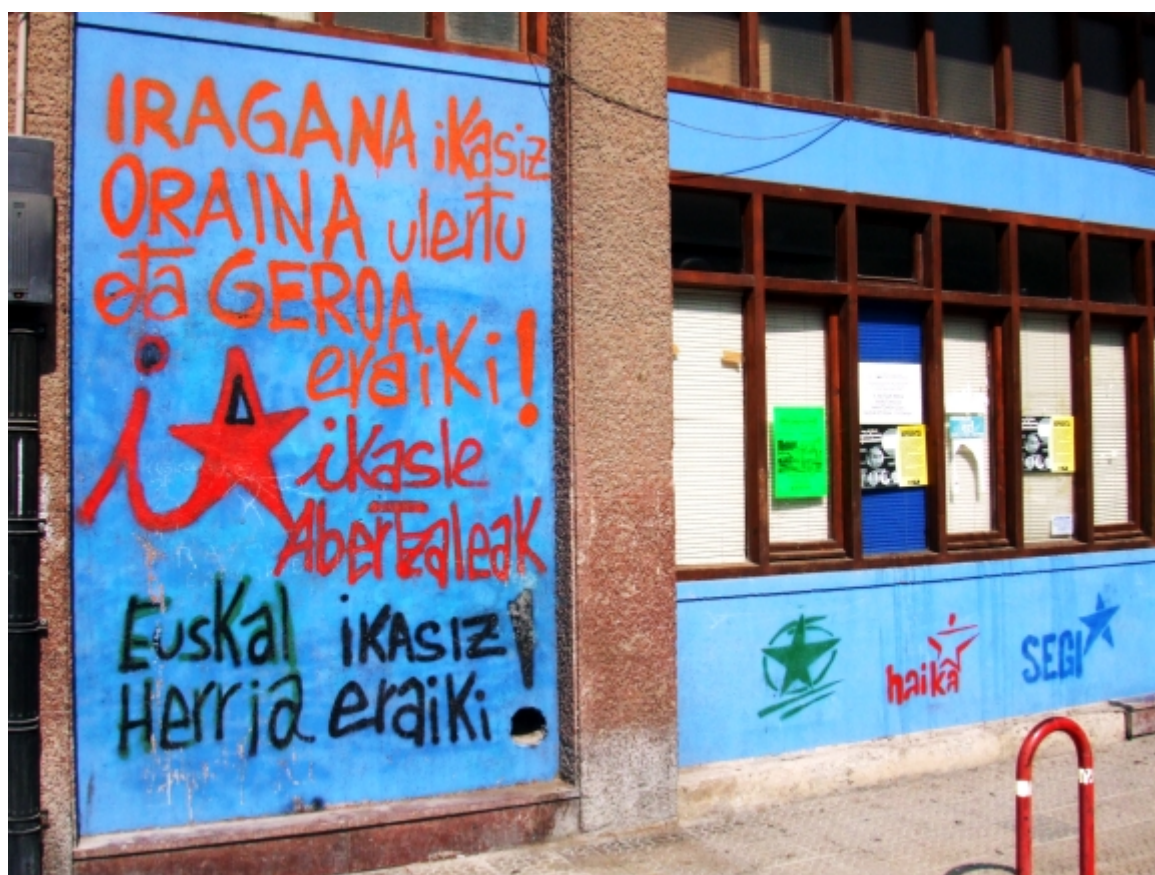 IRAGANA iKasiz
ORAINA ulertu
eta GEROA
eraiKi!
iA
iKasle
AberTzaleaK
EusKal iKASIZ!
Herria eraiKi!
haika
SEGI